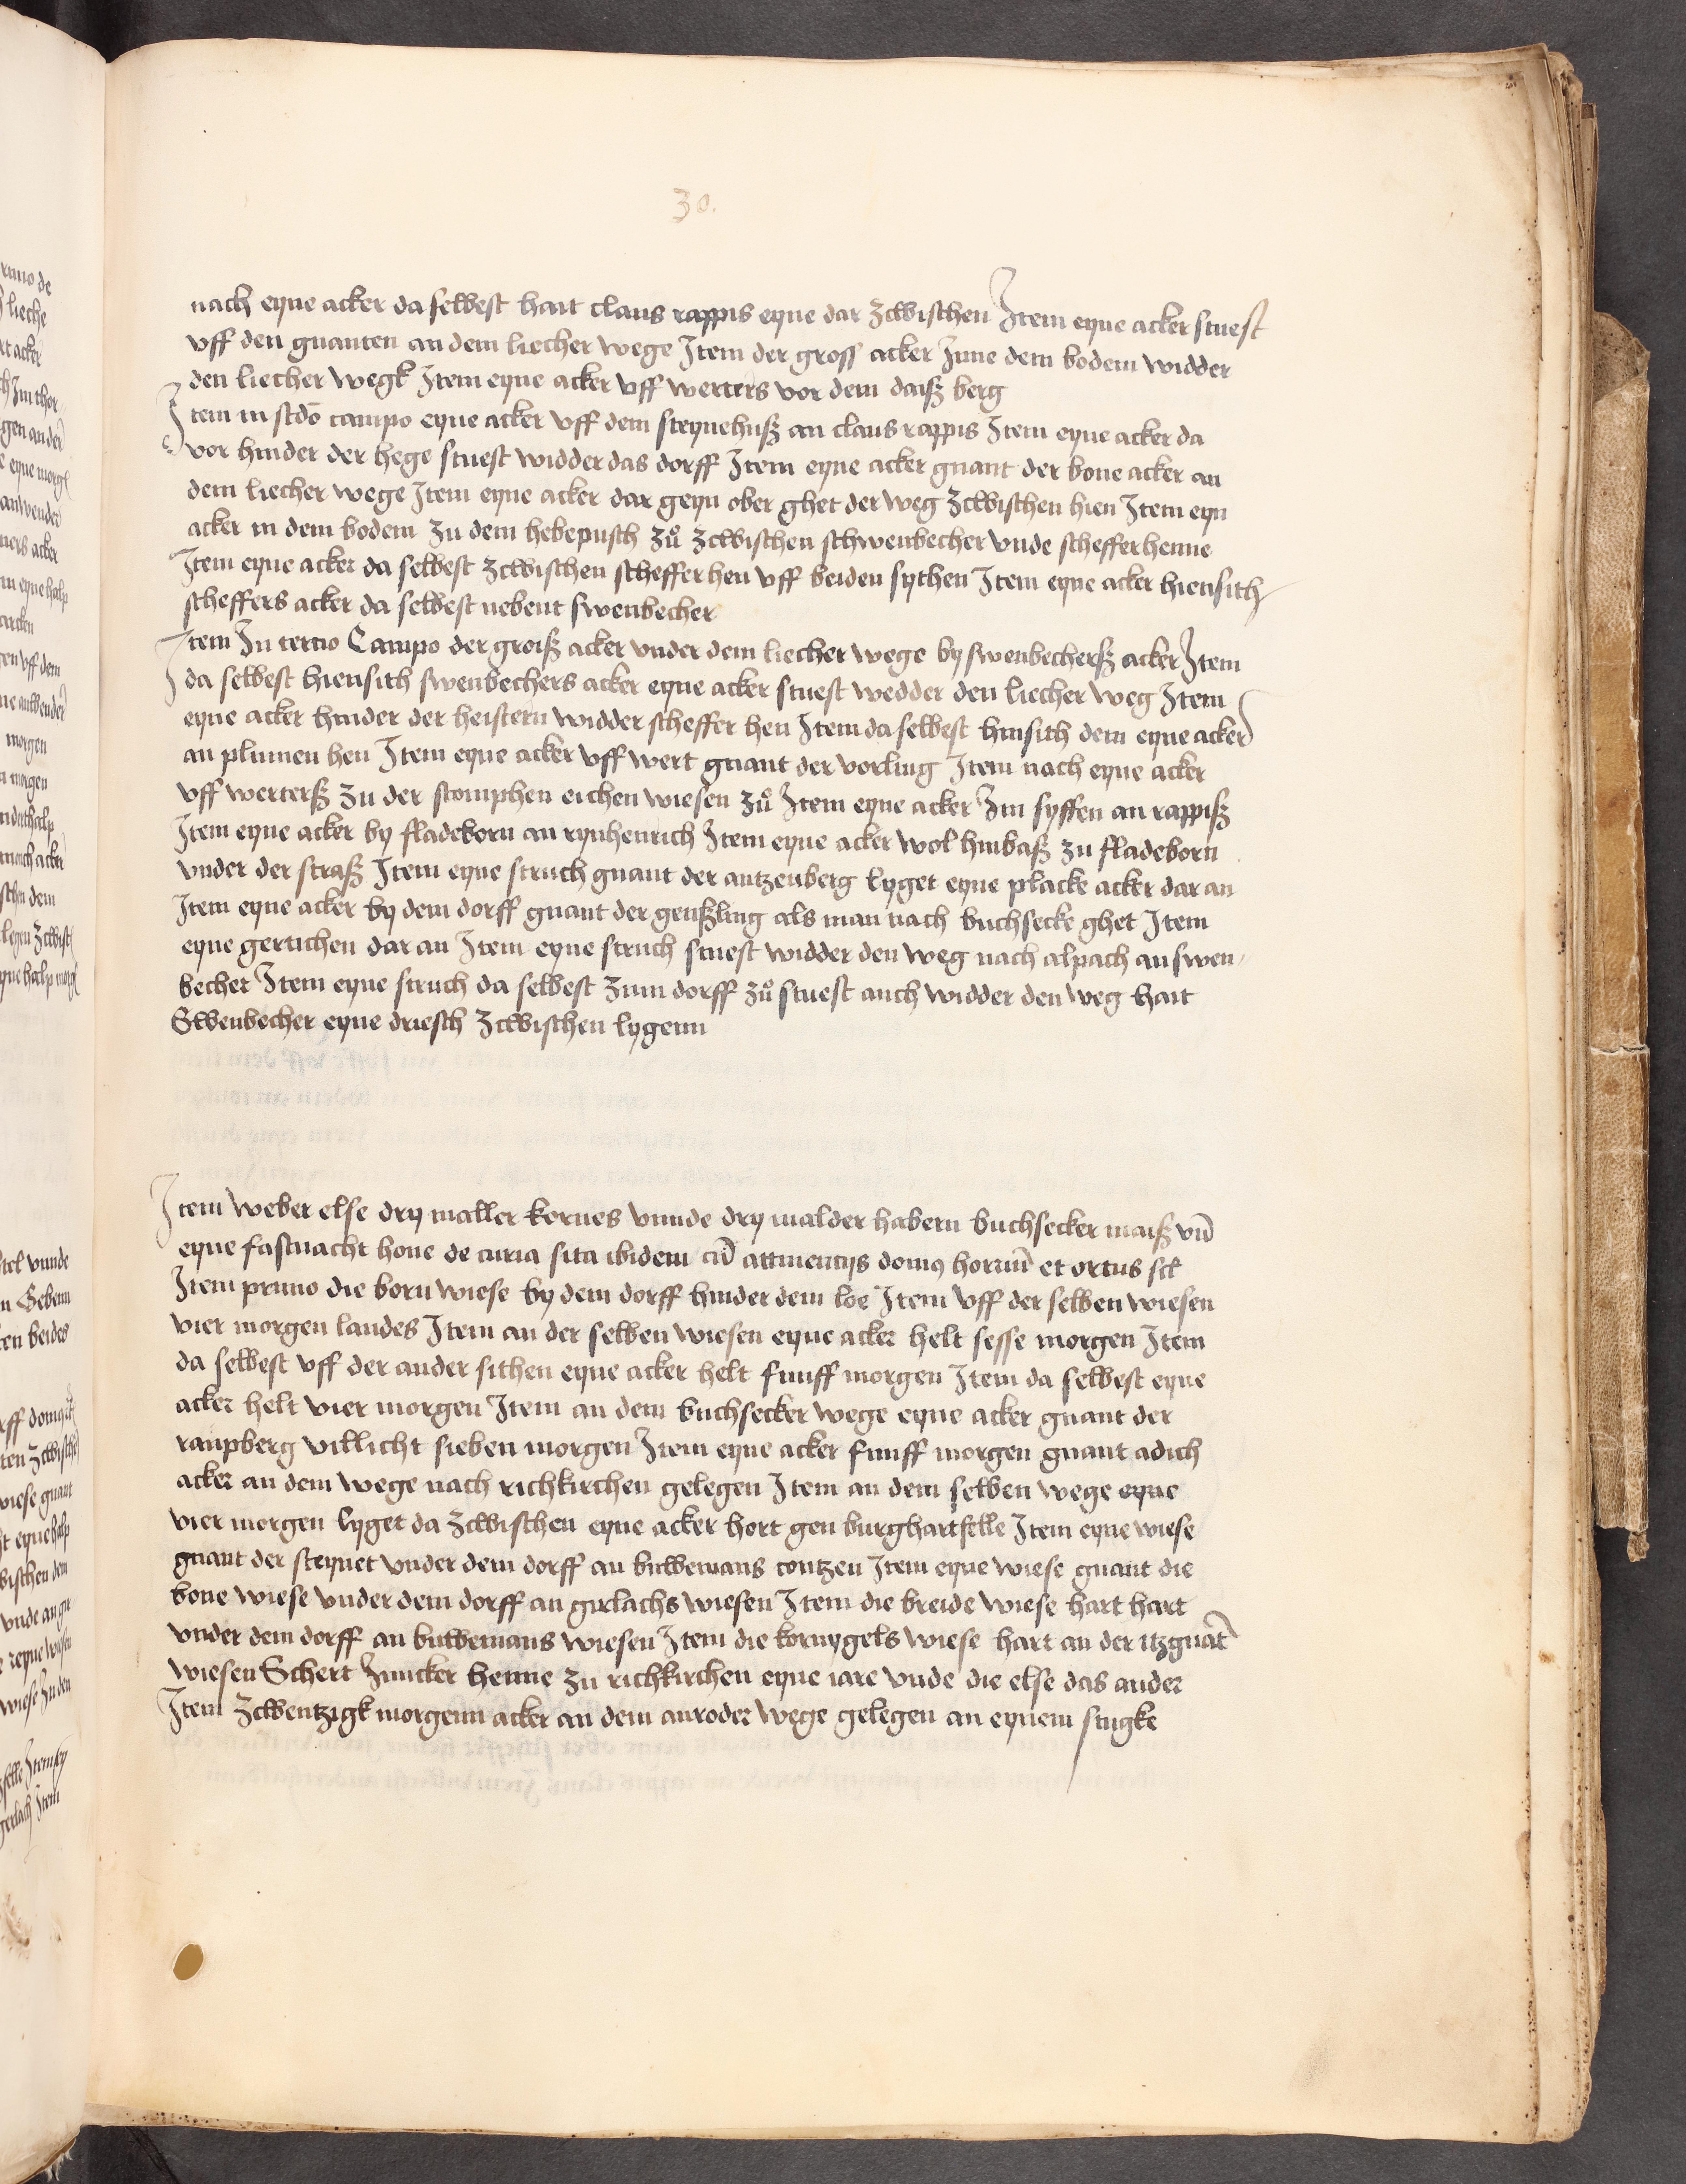 30.
nach eyne acker da selbest hart claus rappis eyne dar zcwischen Item eyne acker stuest
vff den gnanten an dem liecher wege Item der gross acker Inne dem bodem widder
den liecher wegk Item eyne acker vff werters vor dem daiß berg
Item in scdo campo eyne acker vff dem steynehuß an claus rappis Item eyne acker da
vor hinder der hege stuest widder das dorff Item eyne acker gnant der bone acker an
dem liecher wege Item eyne acker dar geyn ober ghet der weg zcwischen hien Item eyn
acker in dem bodem zu dem hebepusch zů zcwischen schwenbecher vnde schefferhenne
Item eyne acker da selbest zcwischen scheffer hen vff beiden sythen Item eyne acker hiensith
scheffers acker da selbest nebent swenbecher
Item In tercio Campo der groiß acker vnder dem liecher wege by swenbecherß acker Item
da selbest hiensith swenbechers acker eyne acker stuest wedder den liecher weg Item
eyne acker hinder der heistern widder scheffer hen Item da selbest hinsith dem eyne acker
an plumen hen Item eyne acker vff wert gnant der vorling Item nach eyne acker
vff werterß zu der stomphen eichen wiesen zů Item eyne acker Im syffen an rappiß
Item eyne acker by fladeborn an rynhenrich Item eyne acker wol hinbaß zu fladeborn
vnder der straß Item eyne struch gnant der antzenberg lyget eyne placke acker dar an
Item eyne acker by dem dorff gnant der genßling als man nach buchsecke ghet Item
eyne gertichen dar an Item eyne struch stuest widder den weg nach alpach an swen
becher Item eyne struch da selbest zum dorff zů stuest auch widder den weg hart
Swenbecher eyne driesch zcwischen lygenn
Item weber else dry maller kornes vnnde dry malder habern buchsecker maiß vn̄
eyne fastnacht hone de curia sita ibidem cū attinentijs domꝰ horriū et ortus scl
Item primo die born wiese by dem dorff hinder dem loe Item vff der selben wiesen
vier morgen landes Item an der selben wiesen eyne acker helt sesse morgen Item
da selbest vff der ander sithen eyne acker helt funff morgen Item da selbest eyne
acker helt vier morgen Item an dem buchsecker wege eyne acker gnant der
raupberg villicht sieben morgen Item eyne acker funff morgen gnant adich
acker an dem wege nach richkirchen gelegen Item an dem selben wege eyne
vier morgen lyget da zcwischen eyne acker hort gen burghartfelle Item eyne wiese
gnant der steynet vnder dem dorff an buwemans contzen Item eyne wiese gnant die
bone wiese vnder dem dorff an girlachs wiesen Item die breide wiese hart hart
vnder dem dorff an buwemans wiesen Item die kornygels wiese hart an der itzgnāt
wiesen Schert Juncker henne zu richkirchen eyne iare vnde die else das ander
Item zcwentzigk morgenn acker an dem anroder wege gelegen an eynem stugke